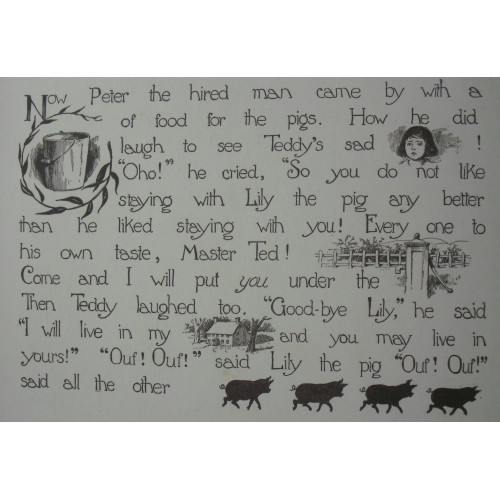 Now Peter the hired man came by with a
of food for the pigs. How he did
laugh to see Teddy's sad !
"Oho!" he cried, "So you do not like
staying with Lily the pig any better
than he liked staying with you! Every one to
his own taste, Master Ted!
Come and I will put you under the
Then Teddy laughed too. "Good-bye Lily," he said
"I will live in my and you may live in
yours!" "Ouf! Ouf!" said Lily the pig "Ouf! Ouf!"
said all the other